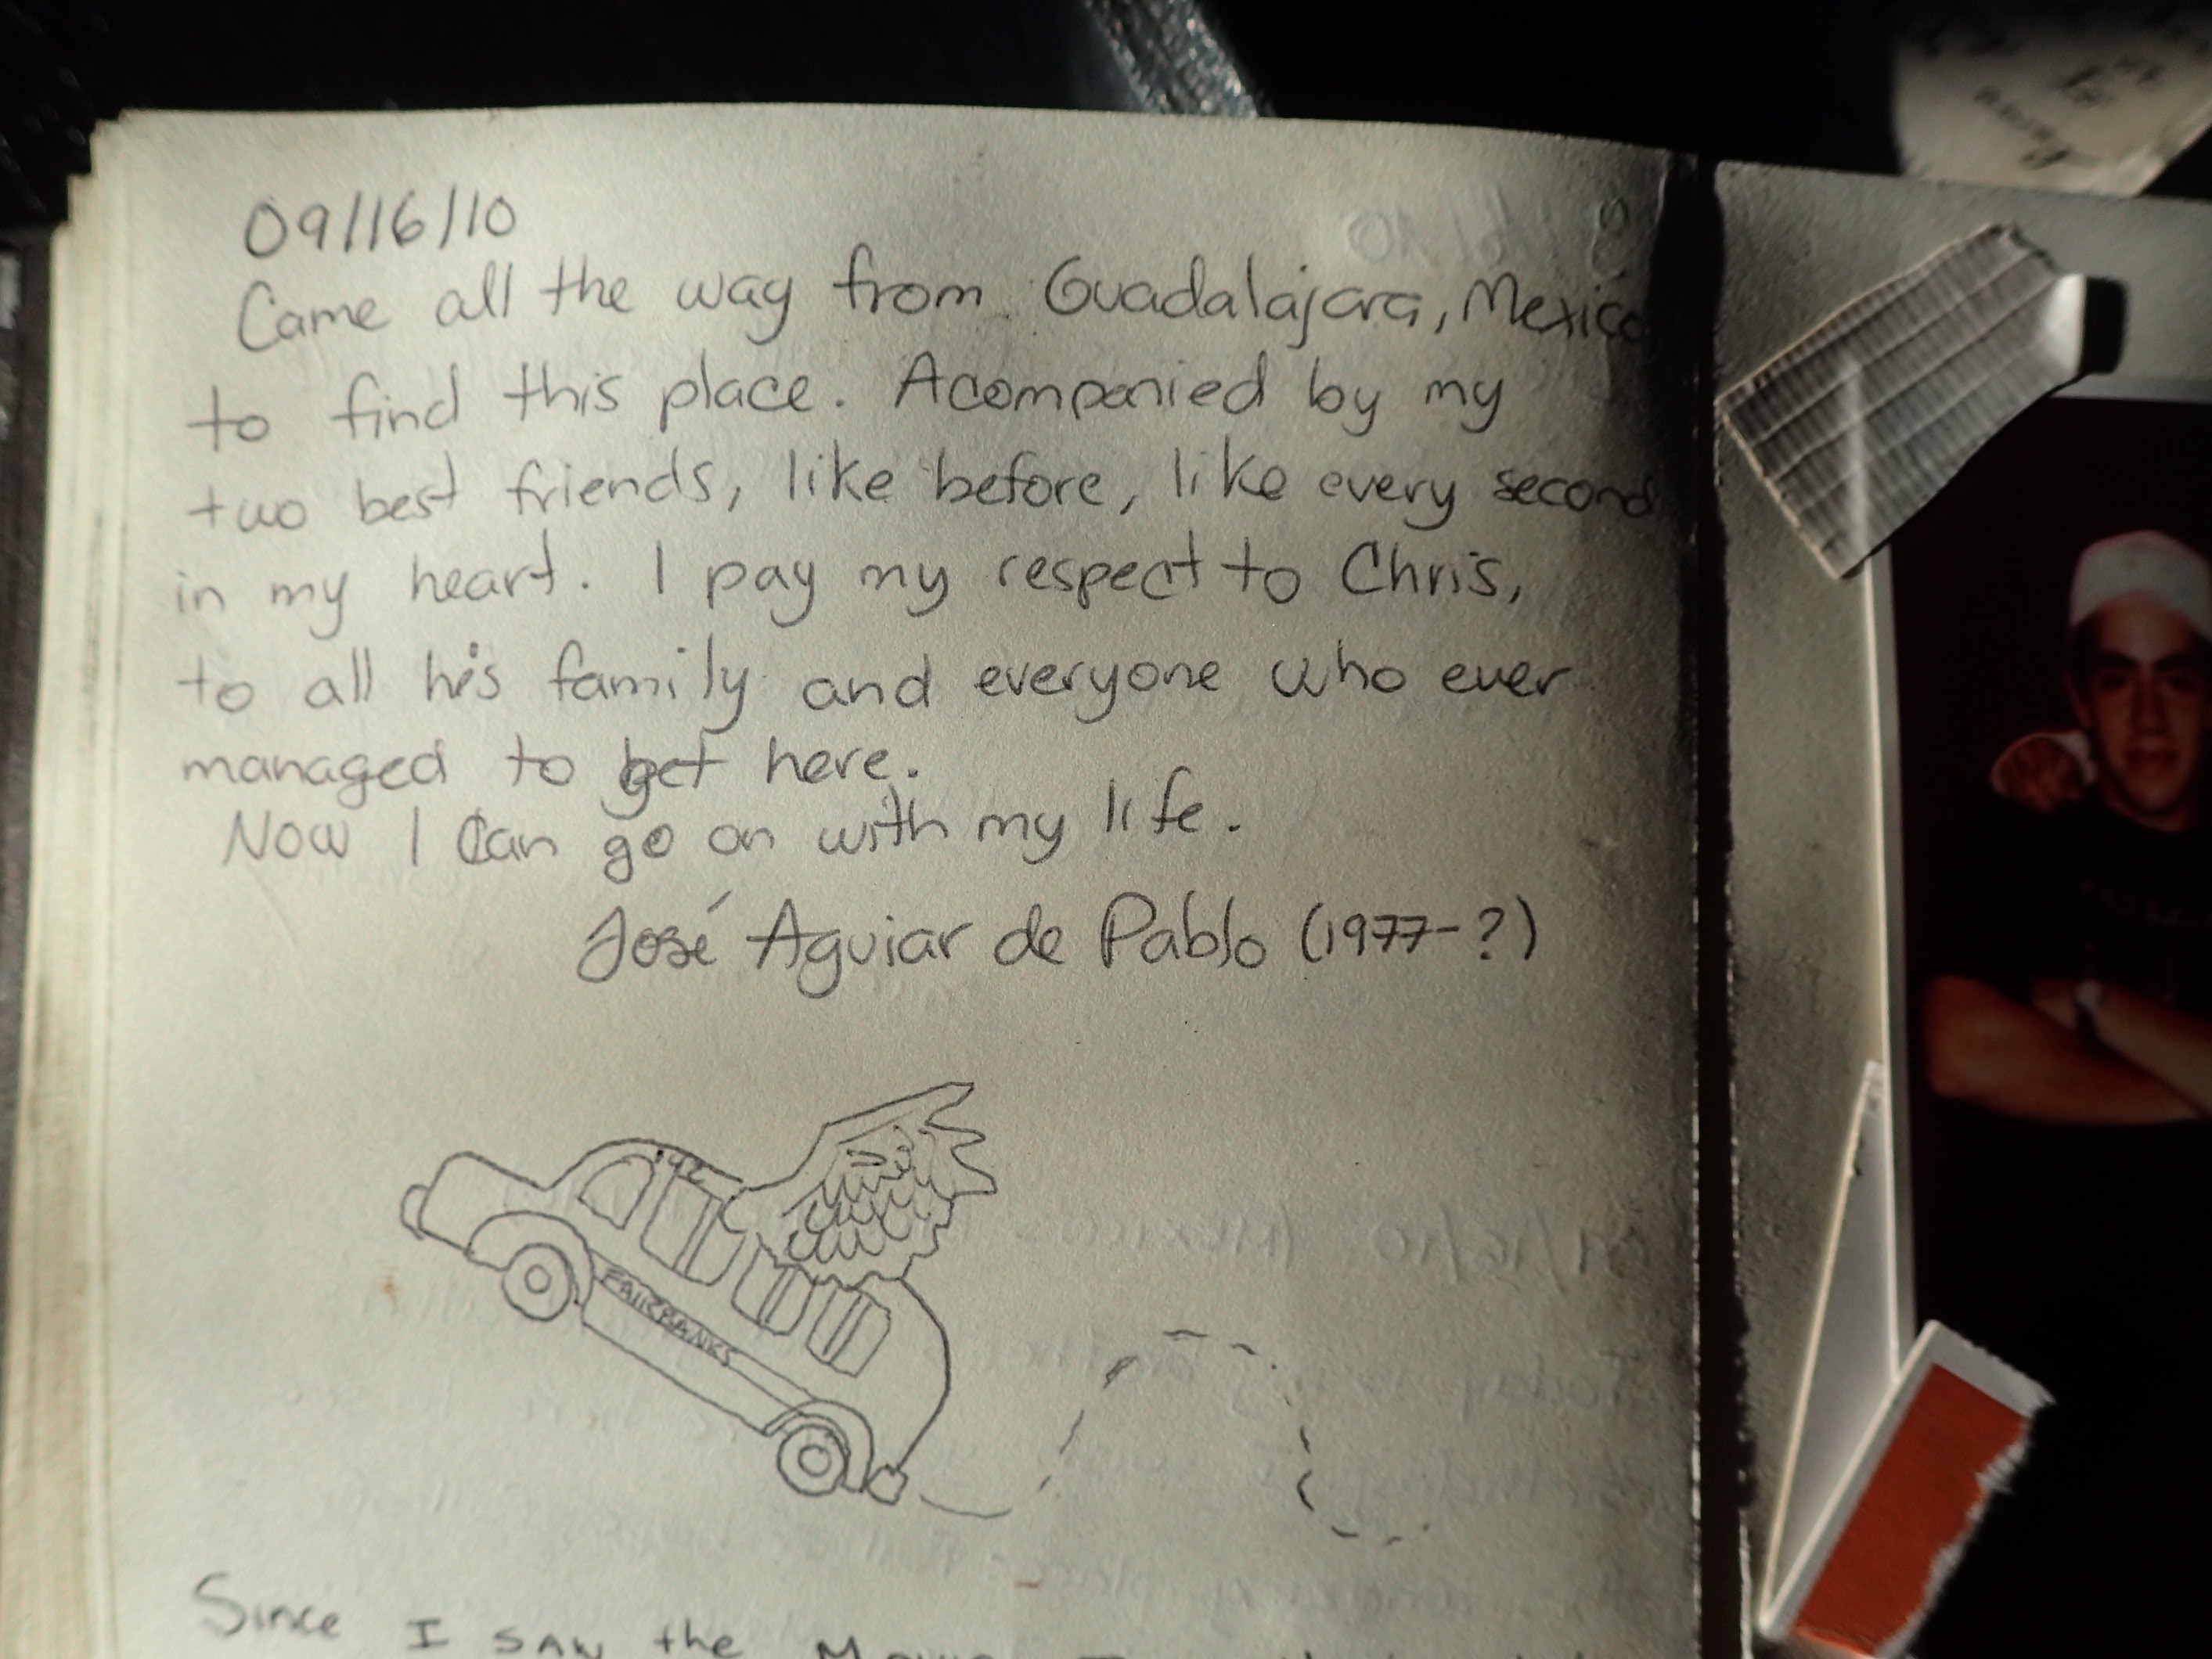 09/16/10
Came all the way from Guadalajara, Mexico
to find this place. Acompanied by my
two best friends, like before, like every second
in my heart. I pay my respect to Chris,
to all his family and everyone who ever
managed to get here.
Now I can go on with my life.
José Aguiar de Pablo (1977-?)
142
FAIRBANKS
Since I saw the Movie